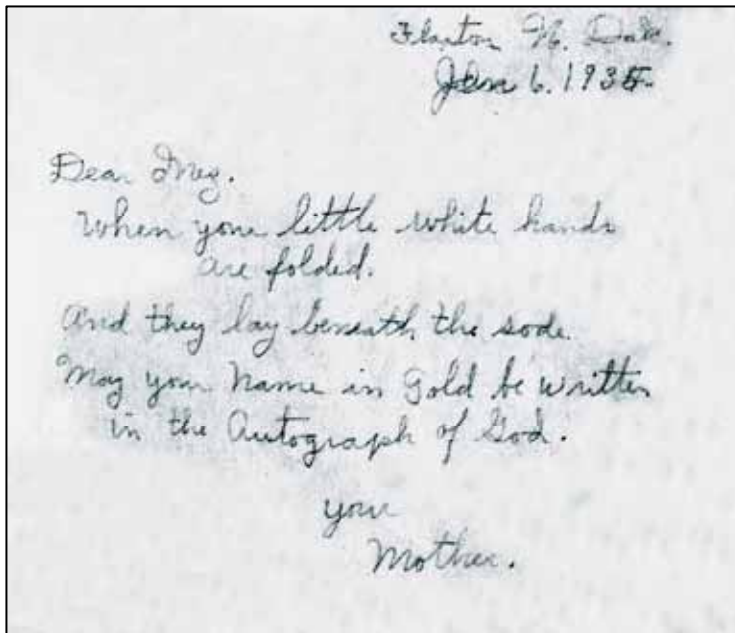 Flaxton N. Dak.
Jan 6. 1935.
Dear Inez.
When your little white hands
are folded.
And they lay beneath the sode.
May your name in Gold be written
in the Autograph of God.
your
Mother.